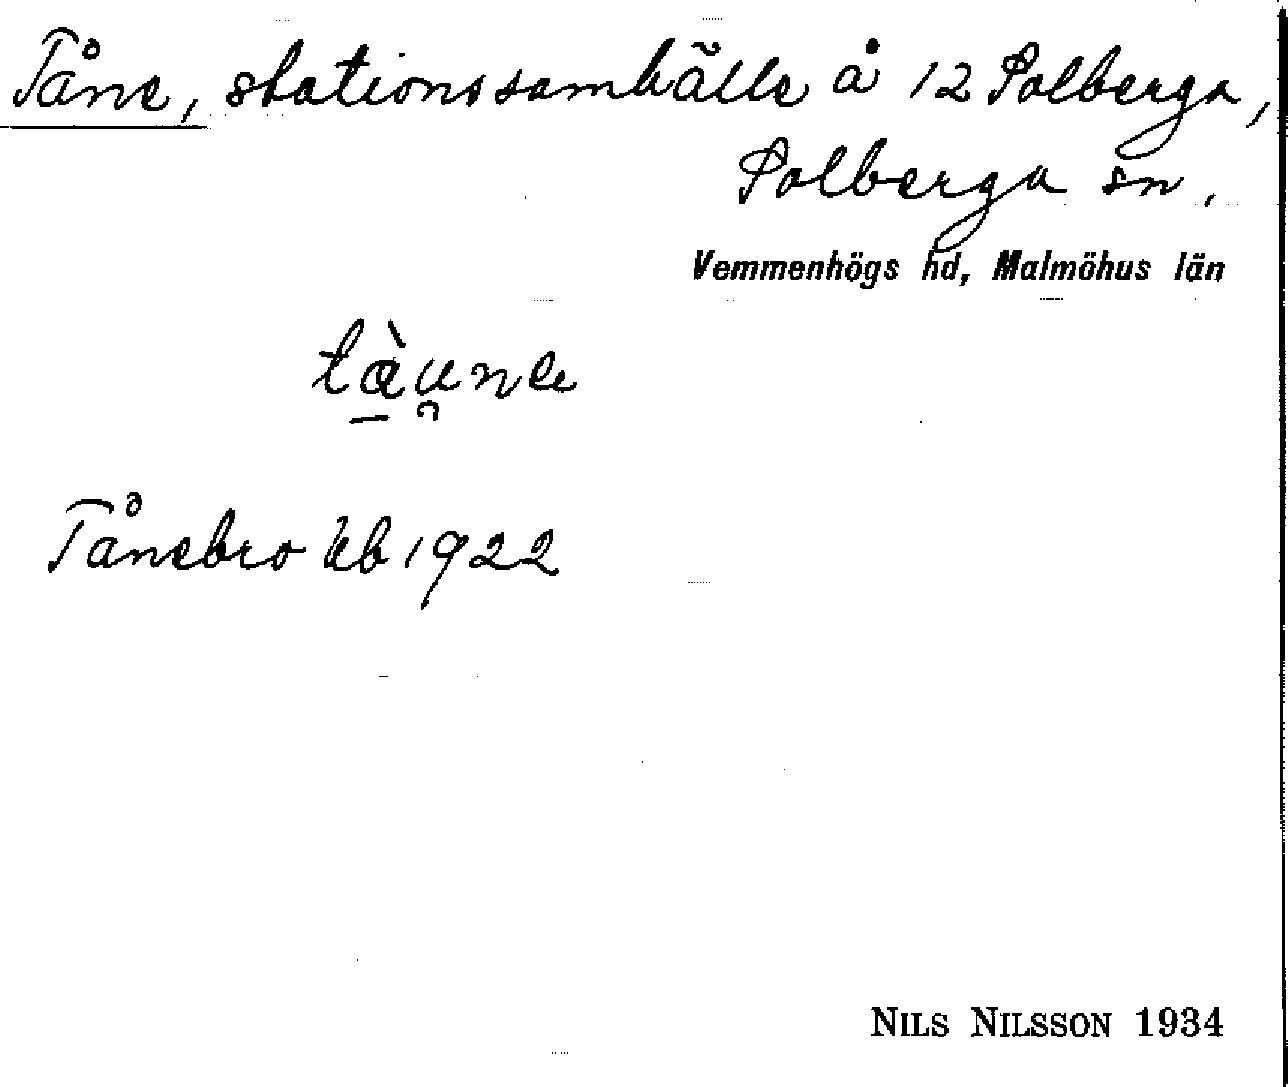 Tåne, stationssamhälle å 12 Solberga,
Solberga sn.
Vemmenhögs hd, Malmöhus län
tàu̯nə
Tånebro kb 1922
NILS NILSSON 1934